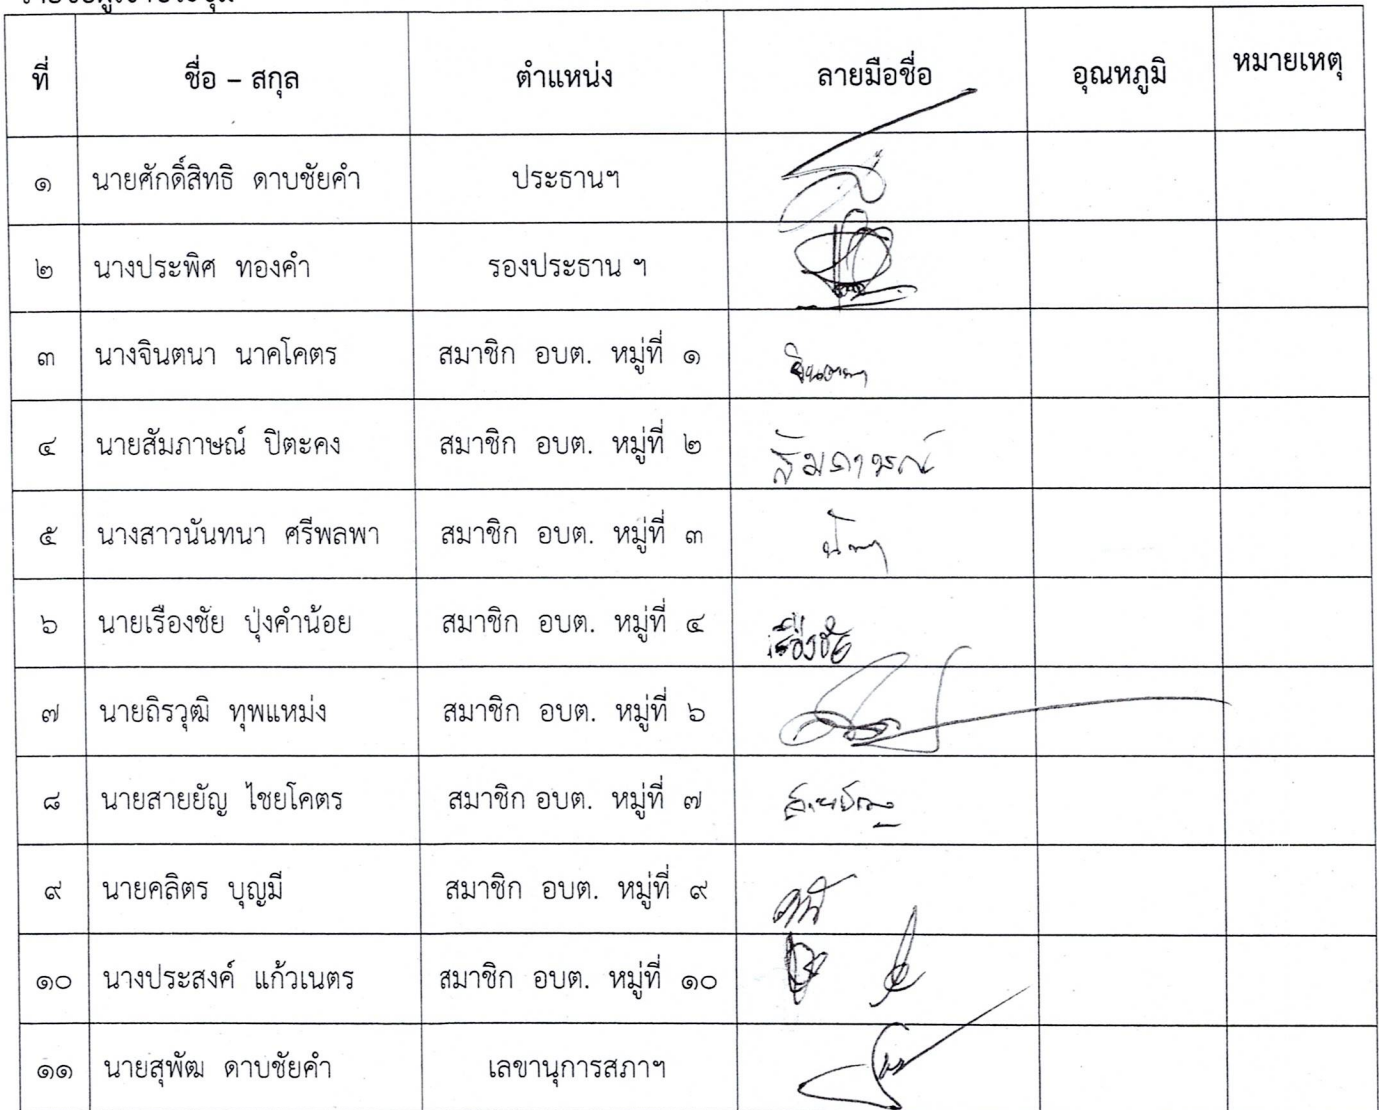 ที่ ชื่อ – สกุล ตำแหน่ง ลายมือชื่อ อุณหภูมิ หมายเหตุ
๑ นายศักดิ์สิทธิ ดาบชัยคำ ประธานฯ
๒ นางประพิศ ทองคำ รองประธาน ฯ
๓ นางจินตนา นาคโคตร สมาชิก อบต. หมู่ที่ ๑ จินตนา
๔ นายสัมภาษณ์ ปิตะคง สมาชิก อบต. หมู่ที่ ๒ สัมภาษณ์
๕ นางสาวนันทนา ศรีพลพา สมาชิก อบต. หมู่ที่ ๓
๖ นายเรืองชัย ปุ่งคำน้อย สมาชิก อบต. หมู่ที่ ๔ เรืองชัย
๗ นายถิรวุฒิ ทุพแหม่ง สมาชิก อบต. หมู่ที่ ๖
๘ นายสายยัญ ไชยโคตร สมาชิก อบต. หมู่ที่ ๗ สายยัญ
๙ นายคลิตร บุญมี สมาชิก อบต. หมู่ที่ ๙
๑๐ นางประสงค์ แก้วเนตร สมาชิก อบต. หมู่ที่ ๑๐
๑๑ นายสุพัฒ ดาบชัยคำ เลขานุการสภาฯ